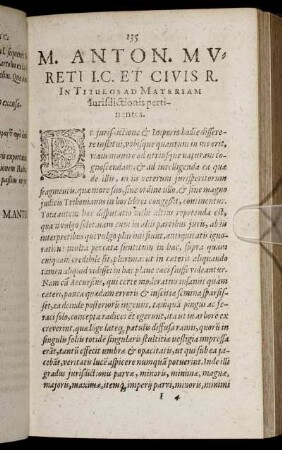 135
M. ANTON. MV-
RETI I.C. ET CIVIS R.
IN TITULOS AD MATERIAM
Iurisdictionis perti-
nentes.
DE jurisdictione & Imperio hodie dissere-
re institui, vobisque quantum in me erit,
viam munire ad utriusque naturam co-
gnoscendam, & ad intelligenda ea quæ
de illis, ex iis veterum jurisperitorum
fragmentis, quæ more suo, sine ordine ullo, & sine magno
judicio Tribonianus in hos libros congessit, continentur.
Tota autem hæc disputatio valde altius repetenda est,
quia ut vulgo solet, nam cum in aliis partibus juris, ab iis
interpretibus qui vulgo plurimi fiunt, antiquitatis igno-
ratione multa peccata sint, tum in hac, supra quam
cuiquam credibile sit, plurima: ut in cæteris aliquando
tamen aliquid vidisse, in hac plane cæci fuisse videantur.
Nam cũ Accursius, qui certe moderatius insanit quam
cæteri, pauca quædam erroris & inscitiæ semina sparsis-
set, ea deinde posteriorũ incuria, tanquã pingui ac fe-
raci solo, concepta radices ut egerunt, ita ut in arborẽ ex
creverint, quæ lige lateq, patulis diffusa ramis, quorũ in
singulis foliis totidẽ singularis stultitiæ vestigia impressa
erãt, tantũ effecit umbræ & opacitatis, ut qui sub ea ja-
cebãt, veritatis lucẽ aspicere nunquã potuerint. Inde illi
gradus jurisdictionis parvæ, minoris, minimæ, magnæ,
majoris, maximæ, itemq, imperij parvi, minoris, minimi
I 4